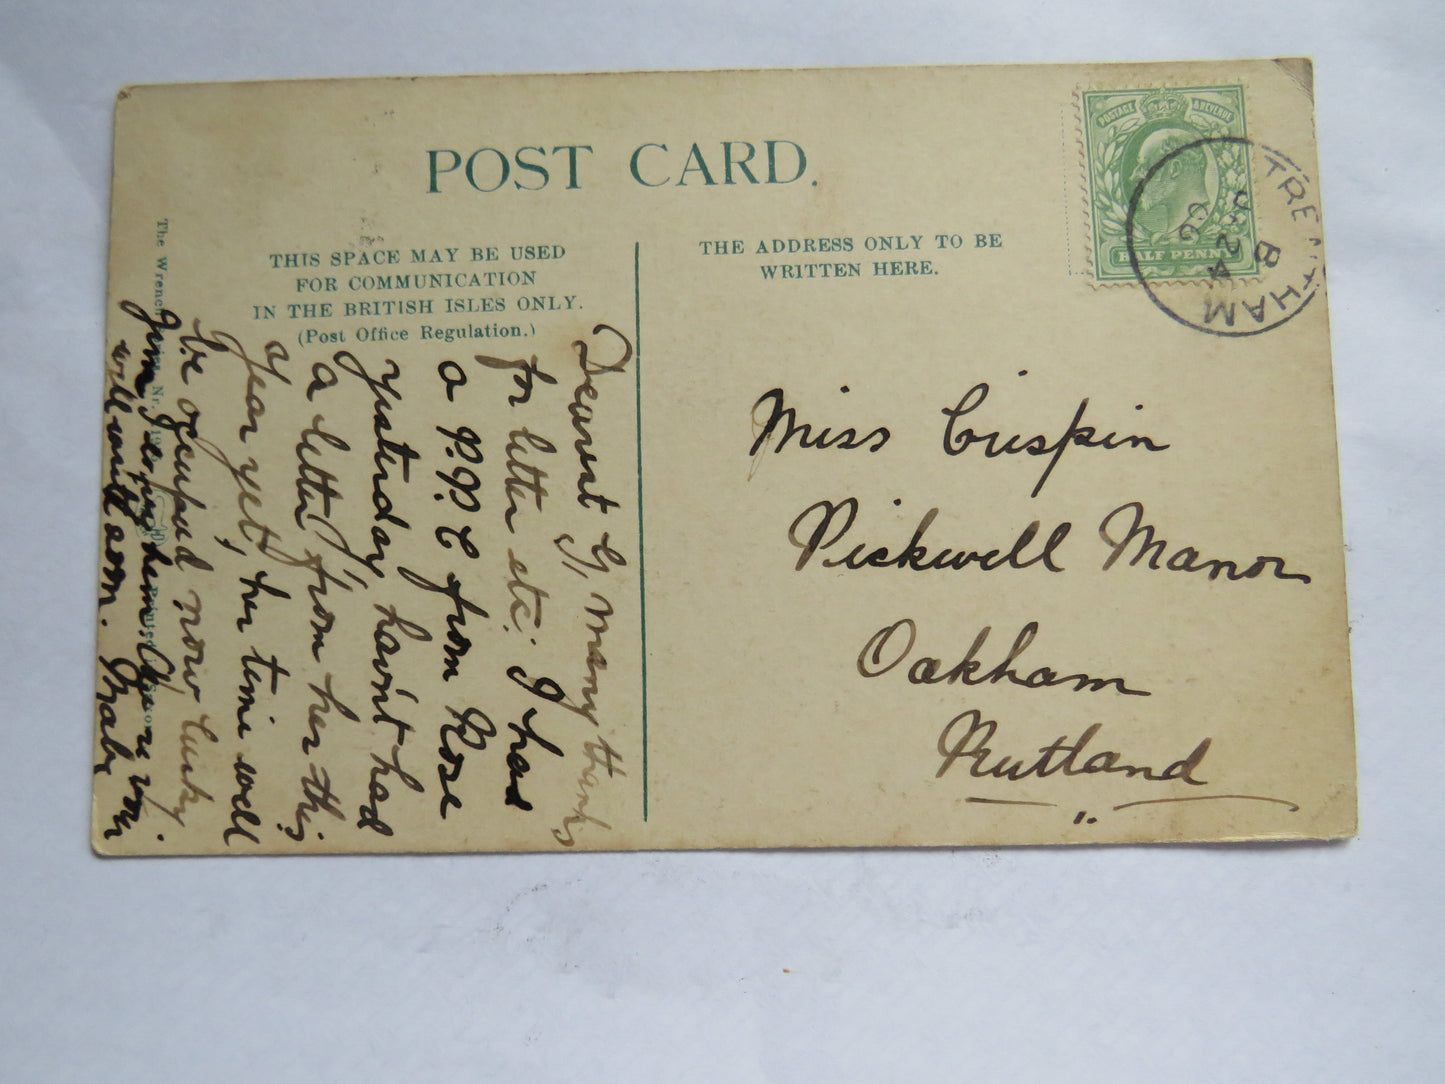 POST CARD.
THIS SPACE MAY BE USED
FOR COMMUNICATION
IN THE BRITISH ISLES ONLY.
(Post Office Regulation.)
THE ADDRESS ONLY TO BE
WRITTEN HERE.
POSTAGE & REVENUE
HALF PENNY
TRENTHAM
B
24
06
Miss Crispin
Pickwell Manor
Oakham
Rutland
Dearest G, many thanks
for letter etc. I had
a P.P.C from Rose
yesterday, havn't had
a letter from her this
year yet, her time will
be occupied now lucky
Jim I envy him.
will write soon. Mab
The Wrench